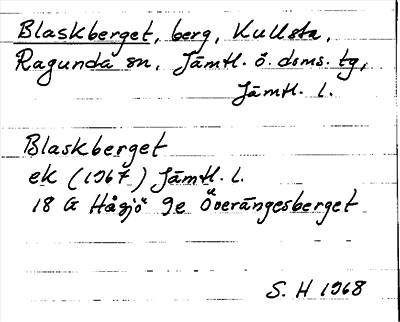 Blaskberget, berg, Kullsta,
Ragunda sn, Jämtl. ö. doms. tg,
Jämtl. l.
Blaskberget
ek (1967) Jämtl. l.
18 G Hågsjö 9e Överängesberget
S. H 1968